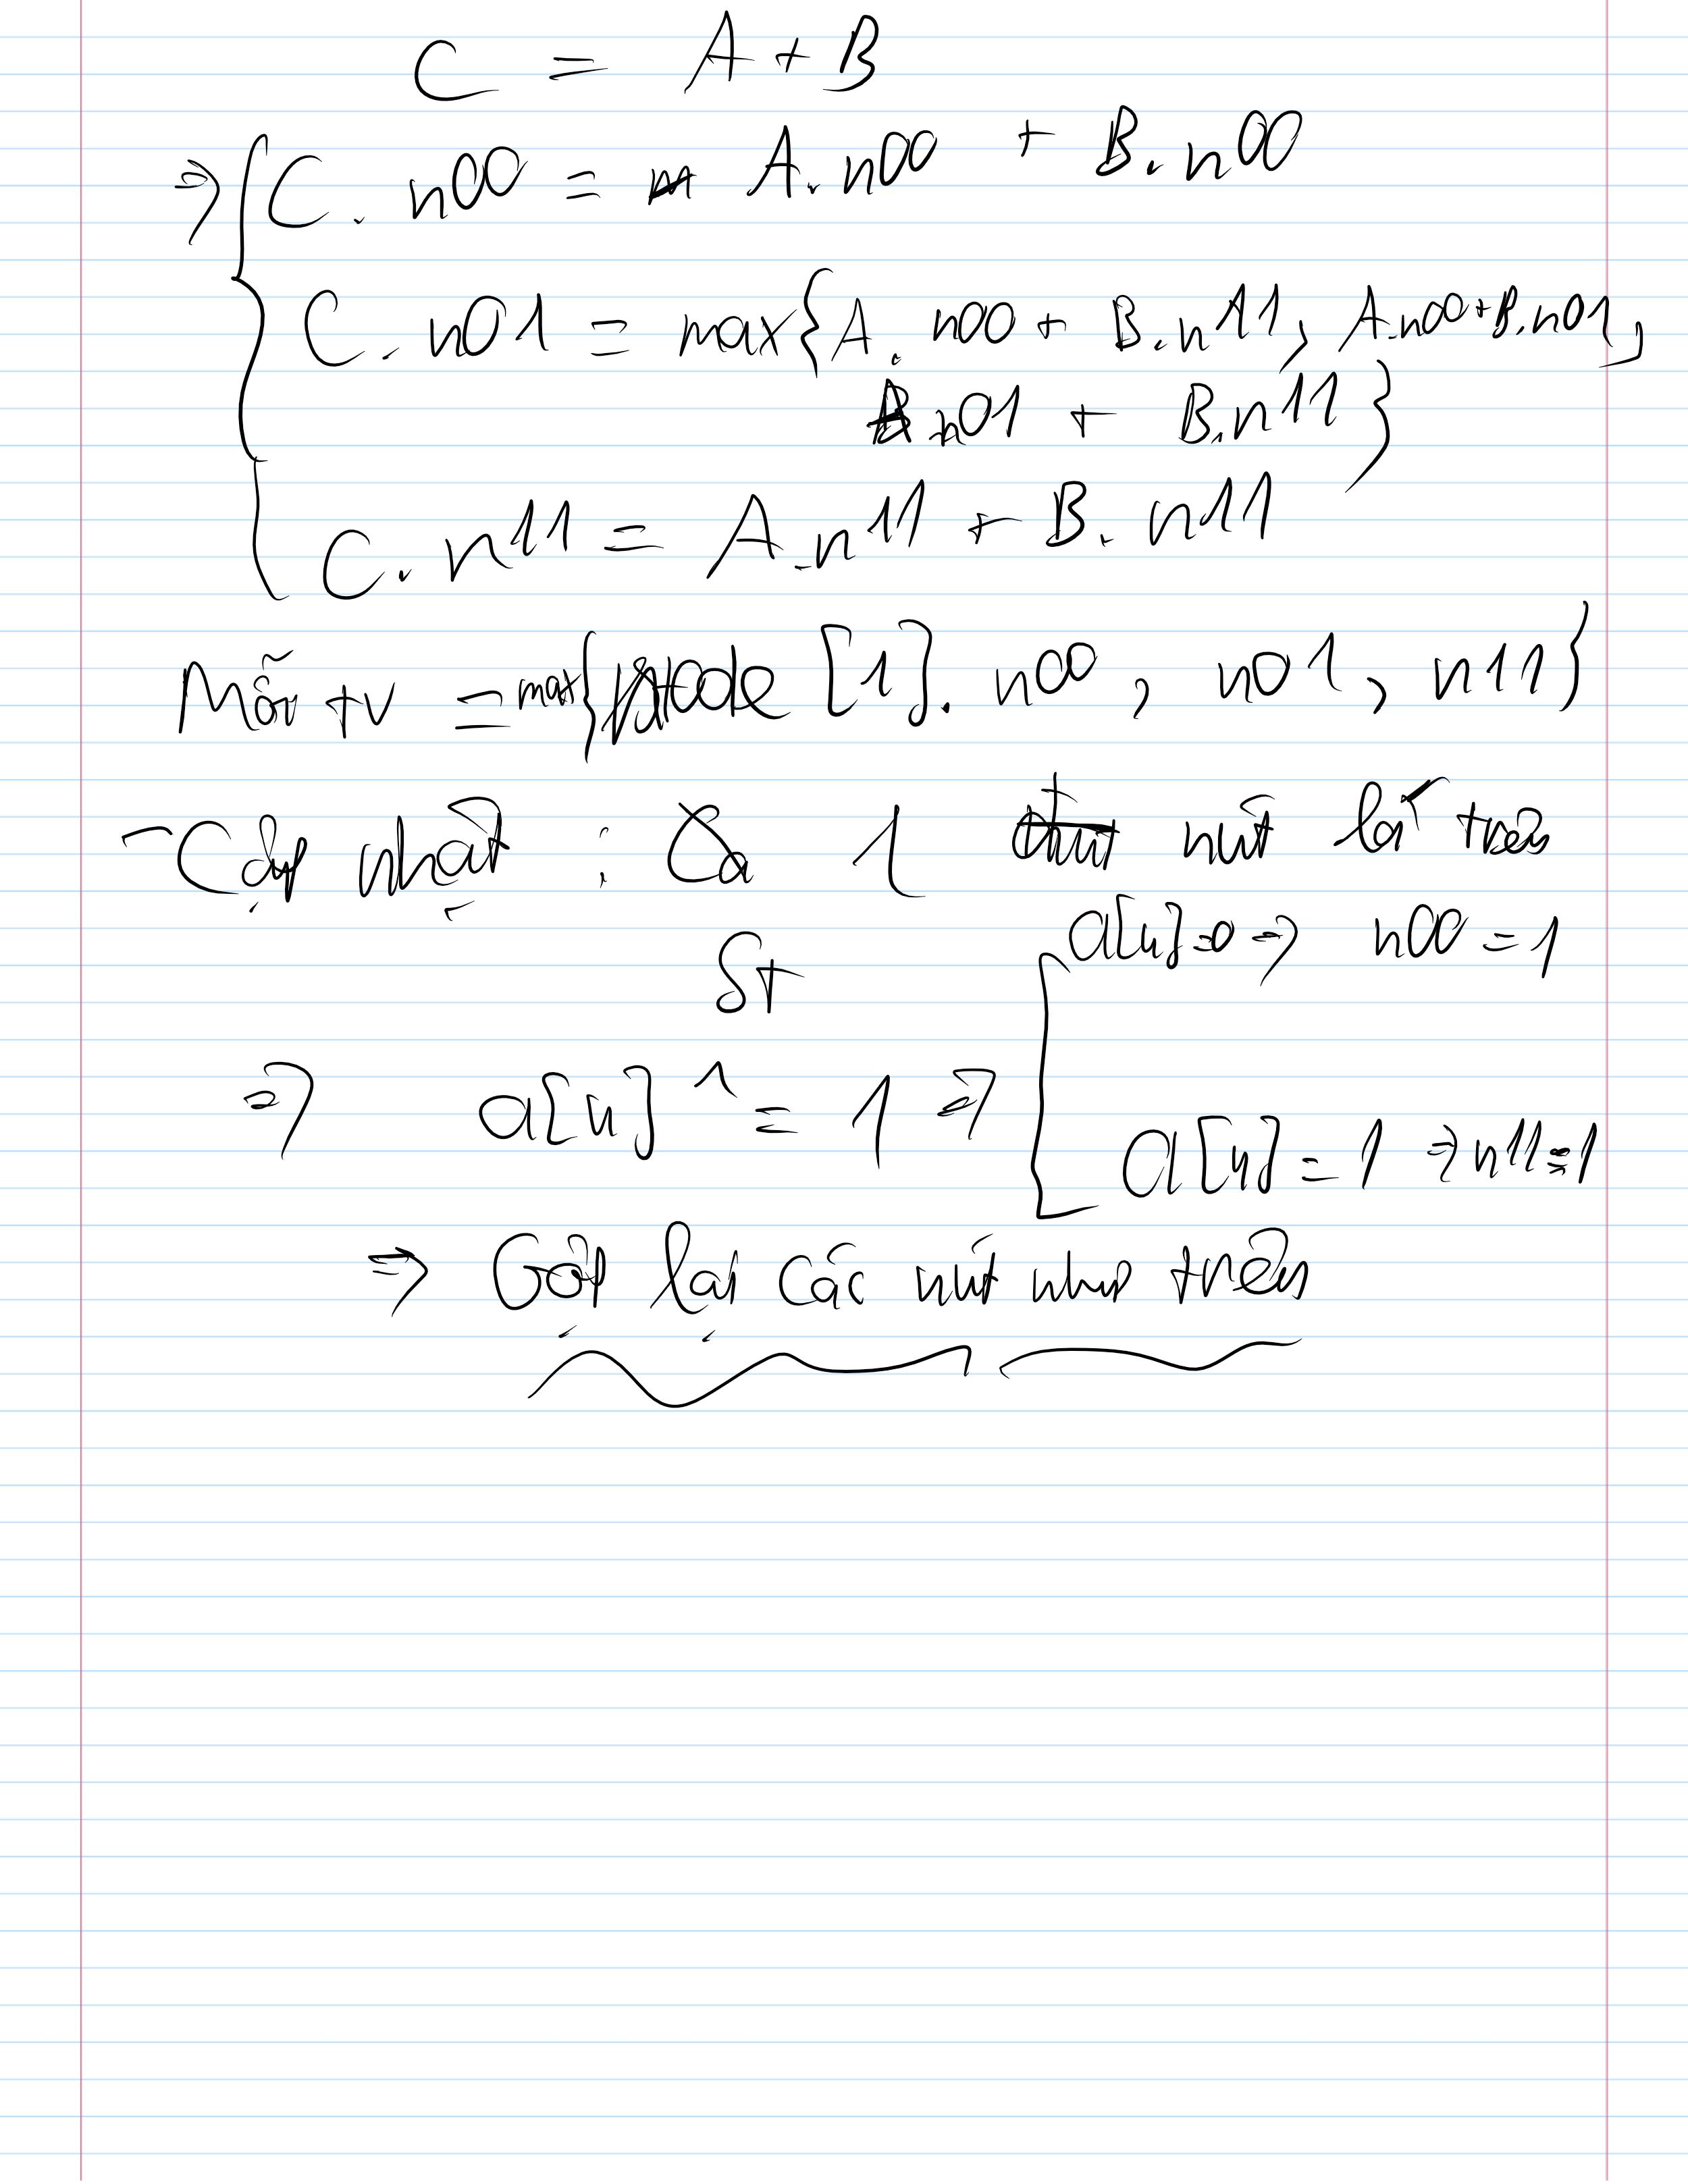 C = A + B
⇒ { C. n00 = A. n00 + B. n00
C. n01 = max { A. n00 + B. n11, A.n00 + B.n01,
A.n01 + B.n11 }
C. n11 = A.n11 + B. n11
Mỗi tv = max{ node [1]. n00, n01, n11 }
- Cập nhật : Ở 1 nút lá trên
ST
a[u]=0 ⇒ n00 = 1
⇒ a[u] ^= 1 ⇒
a[u] = 1 ⇒ n11=1
⇒ Gộp lại các nút như trên